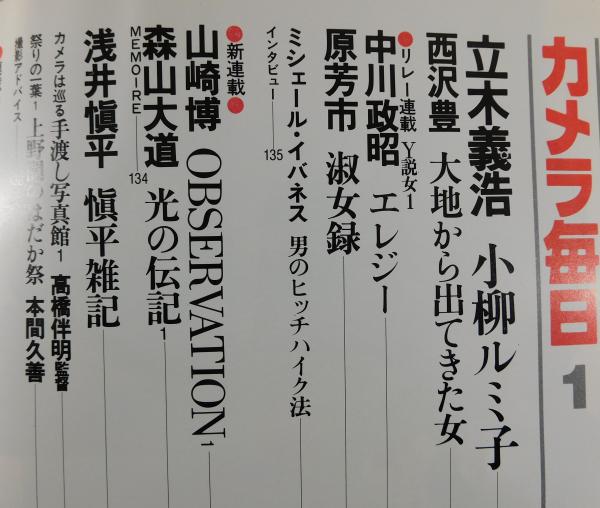 カメラ毎日 1
立木義浩 小柳ルミ子
西沢豊 大地から出てきた女
●リレー連載 Y説女1
中川政昭 エレジー
原芳市 淑女録
ミシェール・イバネス 男のヒッチハイク法
インタビュー 135
●新連載●
山崎博 OBSERVATION 1
森山大道 光の伝記 1
MEMOIRE 134
浅井愼平 愼平雑記
カメラは巡る 手渡し写真館 1 高橋伴明監督
祭りの一葉 1 上野間のはだか祭 本間久善
撮影アドバイス